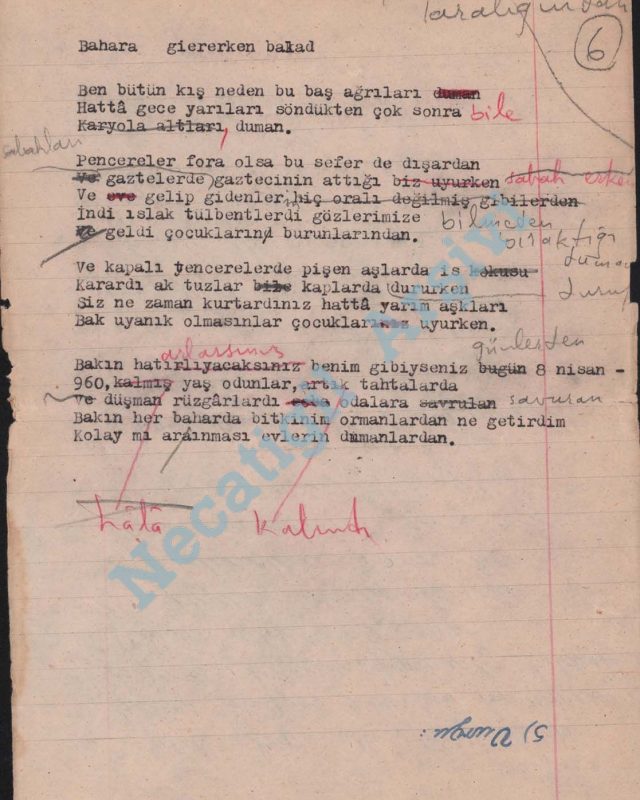 aralığından
6
Bahara giererken balad
Ben bütün kış neden bu baş ağrıları duman
Hattâ gece yarıları söndükten çok sonra bile
Karyola altları, duman.
sabahları
Pencereler fora olsa bu sefer de dışardan
Ve gaztelerde gaztecinin attığı biz uyurken sabah erken
Ve eve gelip gidenler hiç oralı değilmiş gibilerden
İndi ıslak tülbentlerdi gözlerimize bilmeden
Ve geldi çocukların burunlarından. bıraktığı
duman
Ve kapalı tencerelerde pişen aşlarda is kokusu
Karardı ak tuzlar bile kaplarda dururken
Siz ne zaman kurtardınız hattâ yarım aşkları
Bak uyanık olmasınlar çocuklarınız uyurken.
günlerden
Bakın hatırlıyacaksınız benim gibiyseniz bugün 8 nisan -
960, kalmış yaş odunlar, artık tahtalarda
Ve düşman rüzgârlardı sora odalara savrulan savuran
Bakın her baharda bitkinim ormanlardan ne getirdim
Kolay mı arınması evlerin dumanlardan.
hâlâ
Necatigil Arşivi
5) Vurgu: